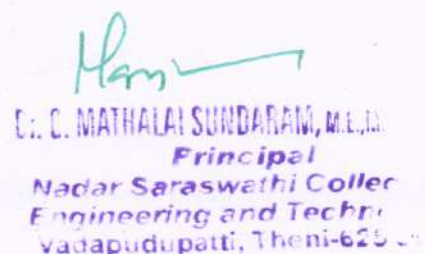 C. MATHALAI SUNDARAM, M.E.,
Principal
Nadar Saraswathi Colle
Engineering and Techn
Vadapudupatti, Theni-625